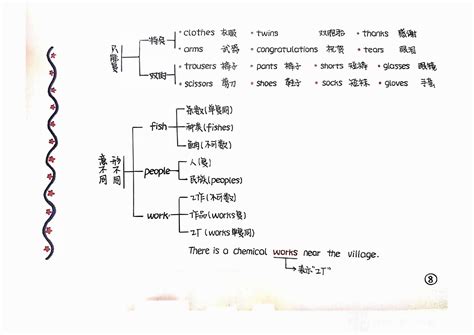 只能复
特复
• clothes 衣服 • twins 双胞胎 • thanks 感谢
• arms 武器 • congratulations 祝贺 • tears 眼泪
双的
• trousers 裤子 • pants 裤子 • shorts 短裤 • glasses 眼镜
• scissors 剪刀 • shoes 鞋子 • socks 短袜 • gloves 手套
形不同
意不同
fish
条数(单复同)
种类(fishes)
鱼肉(不可数)
people
人(复)
民族(peoples)
work
工作(不可数)
作品(works复)
工厂(works单复同)
There is a chemical works near the village.
表示"工厂"
8